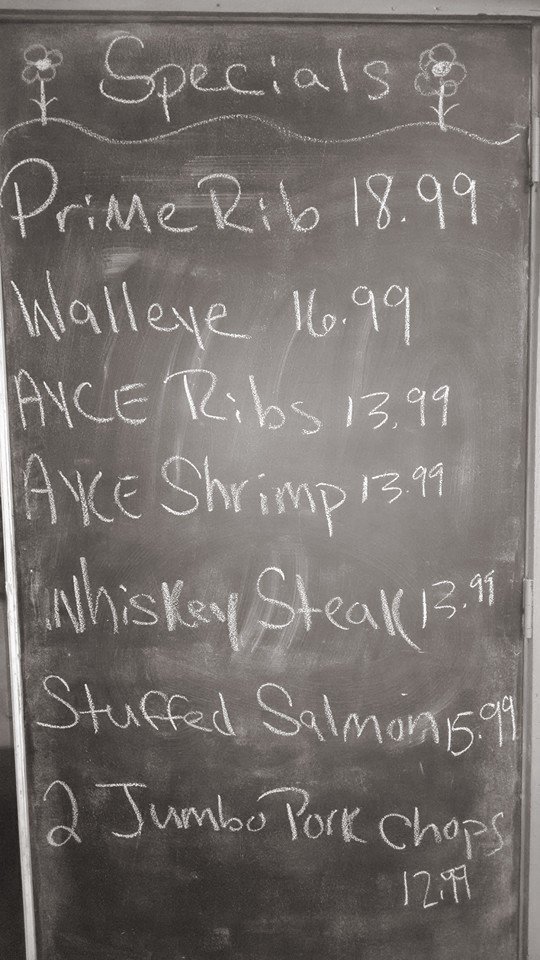 Specials
Prime Rib 18.99
Walleye 16.99
AYCE Ribs 13.99
AYCE Shrimp 13.99
Whiskey Steak 13.99
Stuffed Salmon 15.99
2 Jumbo Pork Chops
12.99